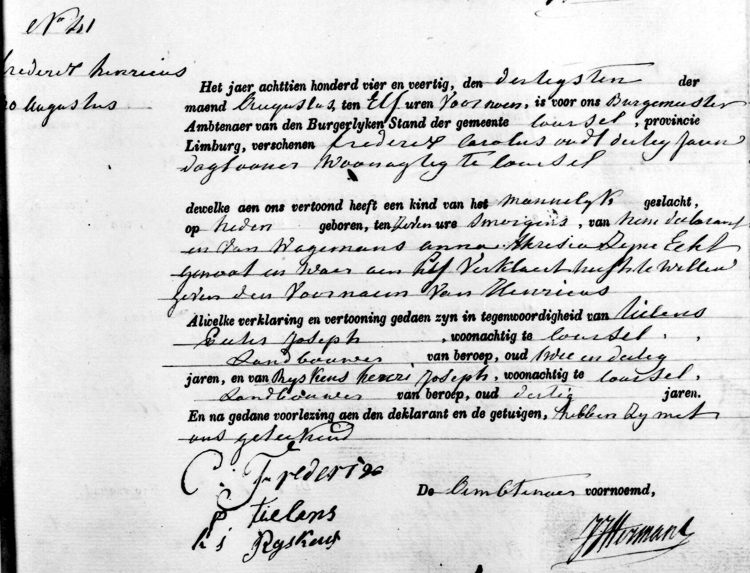 No 41
Frederix henricus
30 augustus
Het jaer achttien honderd vier en veertig, den dertigsten der
maend Augustus, ten Elf uren Voornoen, is voor ons Burgemeester
Ambtenaer van den Burgerlyken Stand der gemeente Coursel, provincie
Limburg, verschenen frederix Carolus oudt dertig Jaren
daglooner Woonagtig te Coursel
dewelke aen ons vertoond heeft een kind van het mannelyk geslacht,
op heden geboren, ten ure Smorgens, van hem declarant
en van Wagemans anna theresia Zyne Echt
genoot en waer aen hy Verklaert heeft te willen
geven den Voornaem Van Henricus
Alwelke verklaring en vertooning gedaen zyn in tegenwoordigheid van tielens
Peeter Joseph , woonachtig te Coursel.
Landbouwer, van beroep, oud twee en dertig
jaren, en van Ryskens henri Joseph, woonachtig te Coursel,
Landbouwer van beroep, oud dertig jaren.
En na gedane voorlezing aen den deklarant en de getuigen, hebben zy met
ons geteekend
C: Frederix
P tielens
h j Ryskens
De Ambtenaer voornoemd,